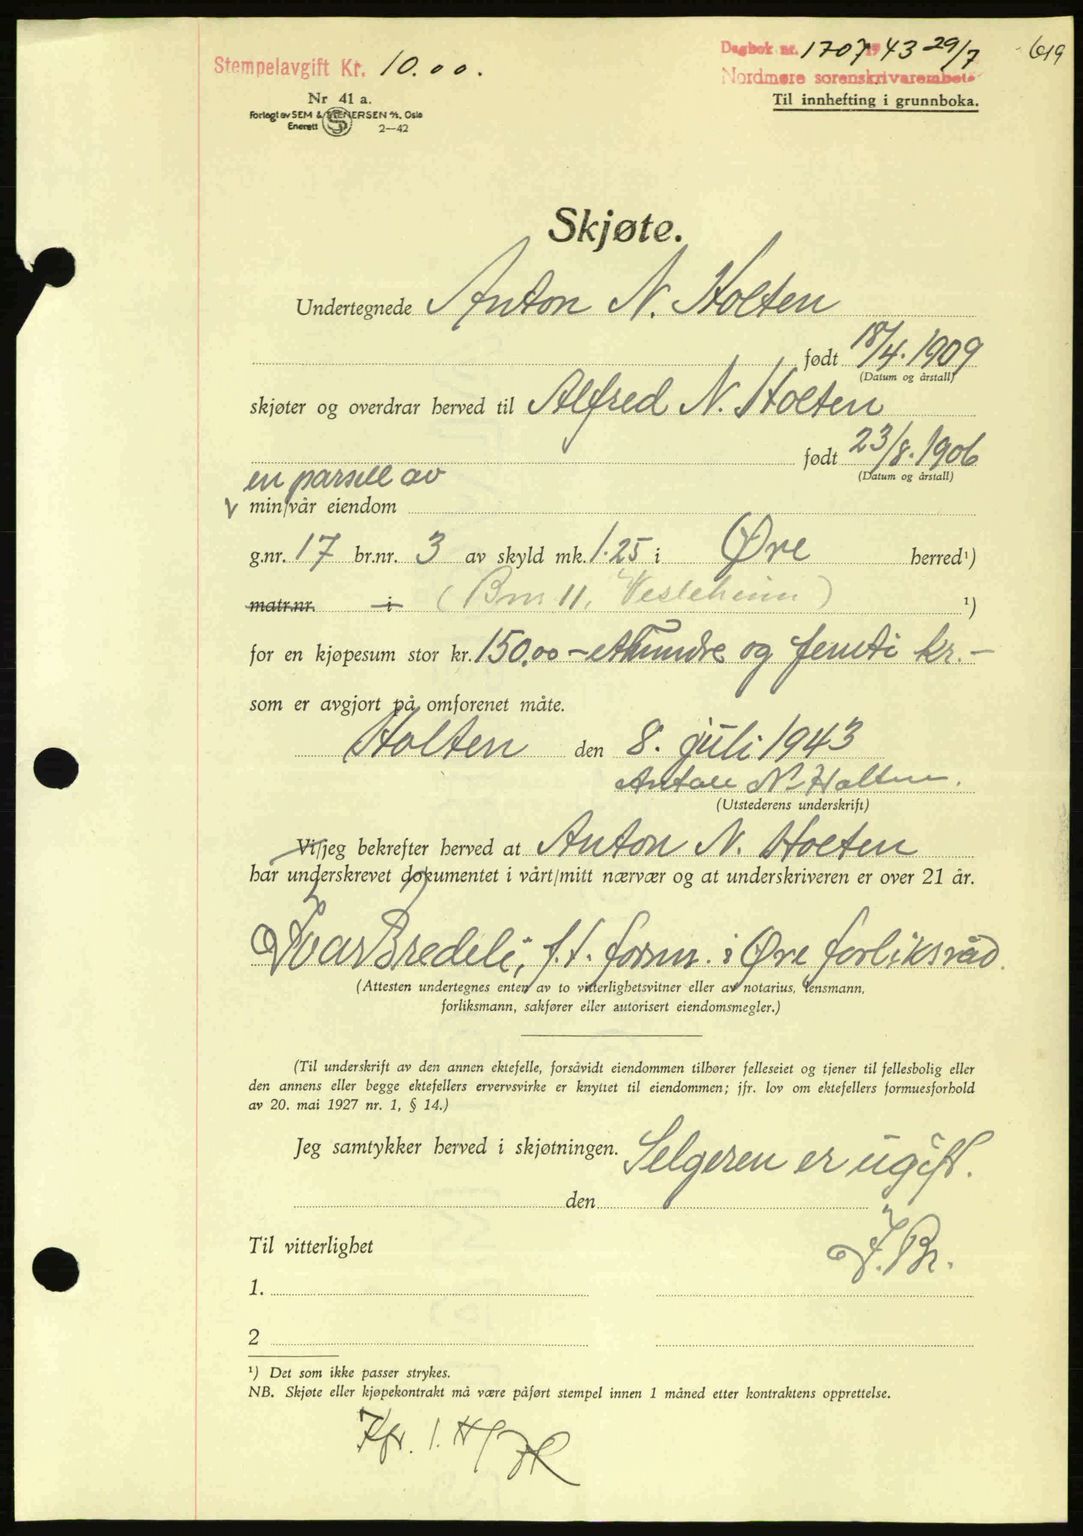 Stempelavgift Kr. 10.00.
Dagbok nr. 1707 1943 29/7
619
Nordmøre sorenskrivarembete
Nr 41 a.
Til innhefting i grunnboka.
Forlagt av SEM & STENERSEN A/S, Oslo
Enerett 2—42
Skjøte.
Undertegnede Anton N. Holten
født 18/4. 1909
(Datum og årstall)
skjøter og overdrar herved til Alfred N. Holten
født 23/8. 1906
(Datum og årstall)
en parsell av
min/vår eiendom
g.nr. 17 br.nr. 3 av skyld mk. 1.25 i Øre herred¹)
matr.nr. i (Bnr 11, Vesleheim) ¹)
for en kjøpesum stor kr. 150.00 – etthundre og femti kr. –
som er avgjort på omforenet måte.
Holten den 8. juli 1943
Anton N. Holten.
(Utstederens underskrift)
Vi/jeg bekrefter herved at Anton N. Holten
har underskrevet dokumentet i vårt/mitt nærvær og at underskriveren er over 21 år.
Ivar Bredeli, f.t. form. i Øre forliksråd.
(Attesten undertegnes enten av to vitterlighetsvitner eller av notarius, lensmann,
forliksmann, sakfører eller autorisert eiendomsmegler.)
(Til underskrift av den annen ektefelle, forsåvidt eiendommen tilhører felleseiet og tjener til fellesbolig eller
den annens eller begge ektefellers ervervsvirke er knyttet til eiendommen; jfr. lov om ektefellers formuesforhold
av 20. mai 1927 nr. 1, § 14.)
Jeg samtykker herved i skjøtningen. Selgeren er ugift.
den
I. Br.
Til vitterlighet
1.
2
¹) Det som ikke passer strykes.
NB. Skjøte eller kjøpekontrakt må være påført stempel innen 1 måned etter kontraktens opprettelse.